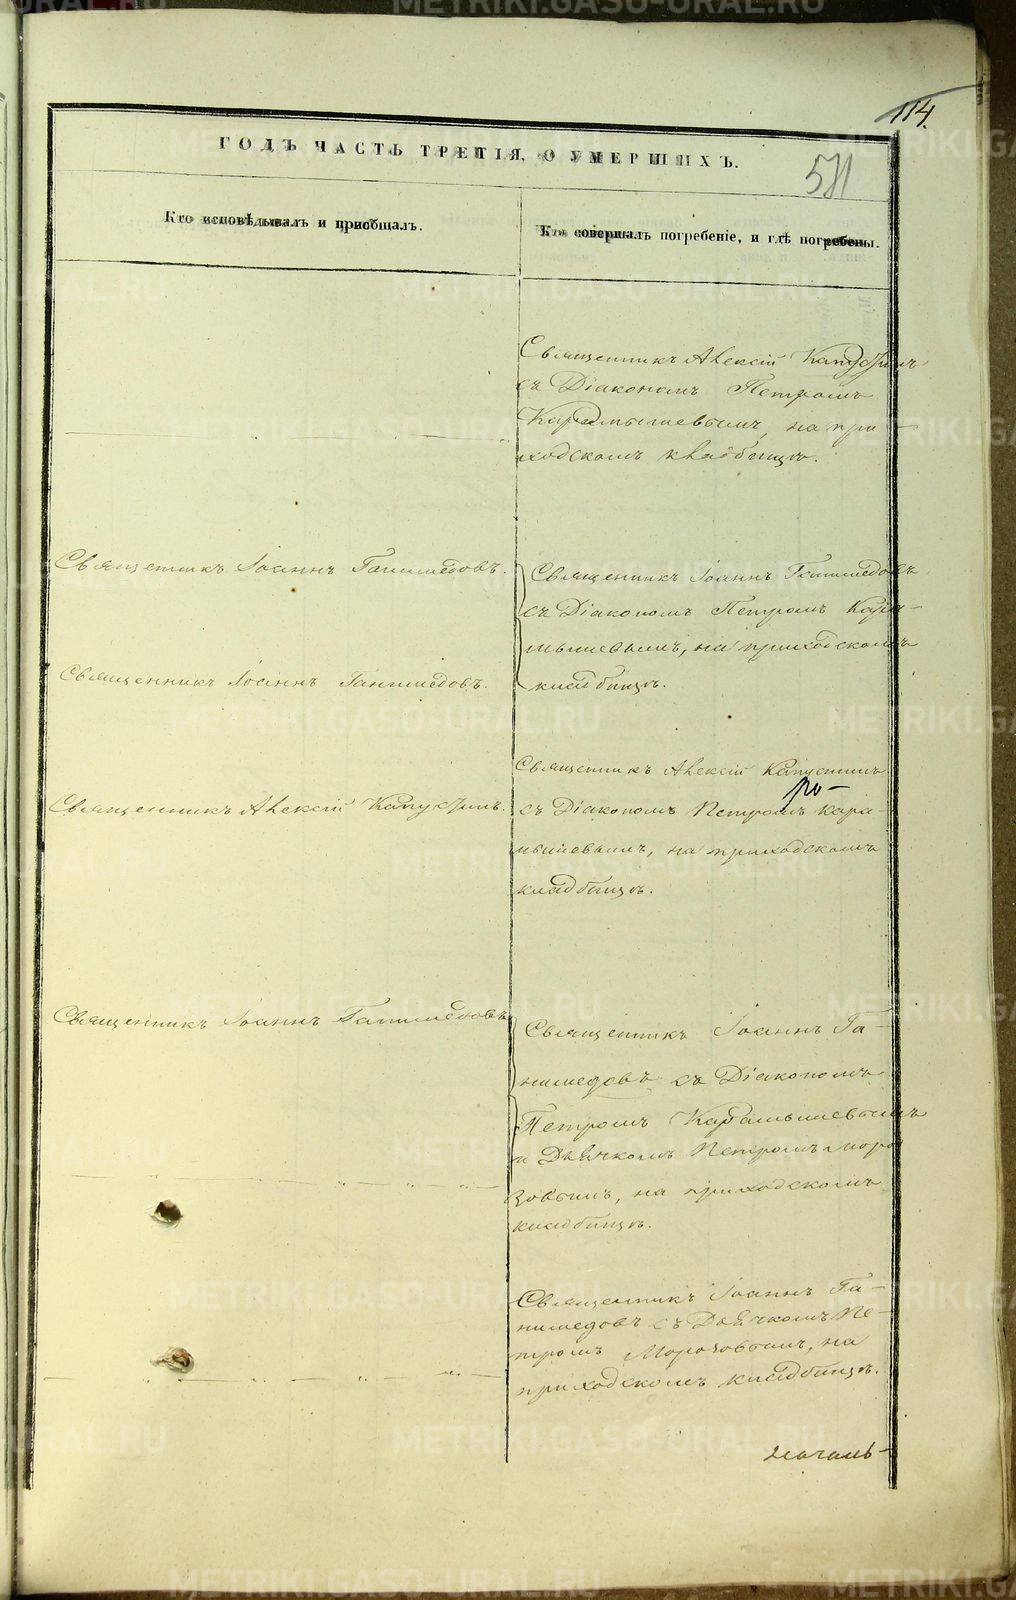 114.
ГОДЪ ЧАСТЬ ТРЕТІЯ, О УМЕРШИХЪ.
511
Кто исповѣдывалъ и пріобщалъ.
Кто совершалъ погребеніе, и гдѣ погребены.
Священникъ Алексій Капустинъ
съ Діакономъ Петромъ
Карамышевымъ, на при-
ходскомъ кладбищѣ.
Священникъ Іоаннъ Ганимедовъ.
Священникъ Іоаннъ Ганимедовъ
съ Діакономъ Петромъ Кара-
мышевымъ, на приходскомъ
кладбищѣ.
Священникъ Іоаннъ Ганимедовъ.
Священникъ Алексій Капустинъ
Священникъ Алексій Капустинъ.
съ Діакономъ Петромъ Кара-
мышевымъ, на приходскомъ
кладбищѣ.
Священникъ Іоаннъ Ганимедовъ
Священникъ Іоаннъ Га-
нимедовъ съ Діакономъ
Петромъ Карамышевымъ
и Дьячкомъ Петромъ Моро
зовымъ, на приходскомъ
кладбищѣ.
Священникъ Іоаннъ Га-
нимедовъ съ Дьячкомъ Пе-
тромъ Морозовымъ, на
приходскомъ кладбищѣ.
METRIKI.GASO-URAL.RU